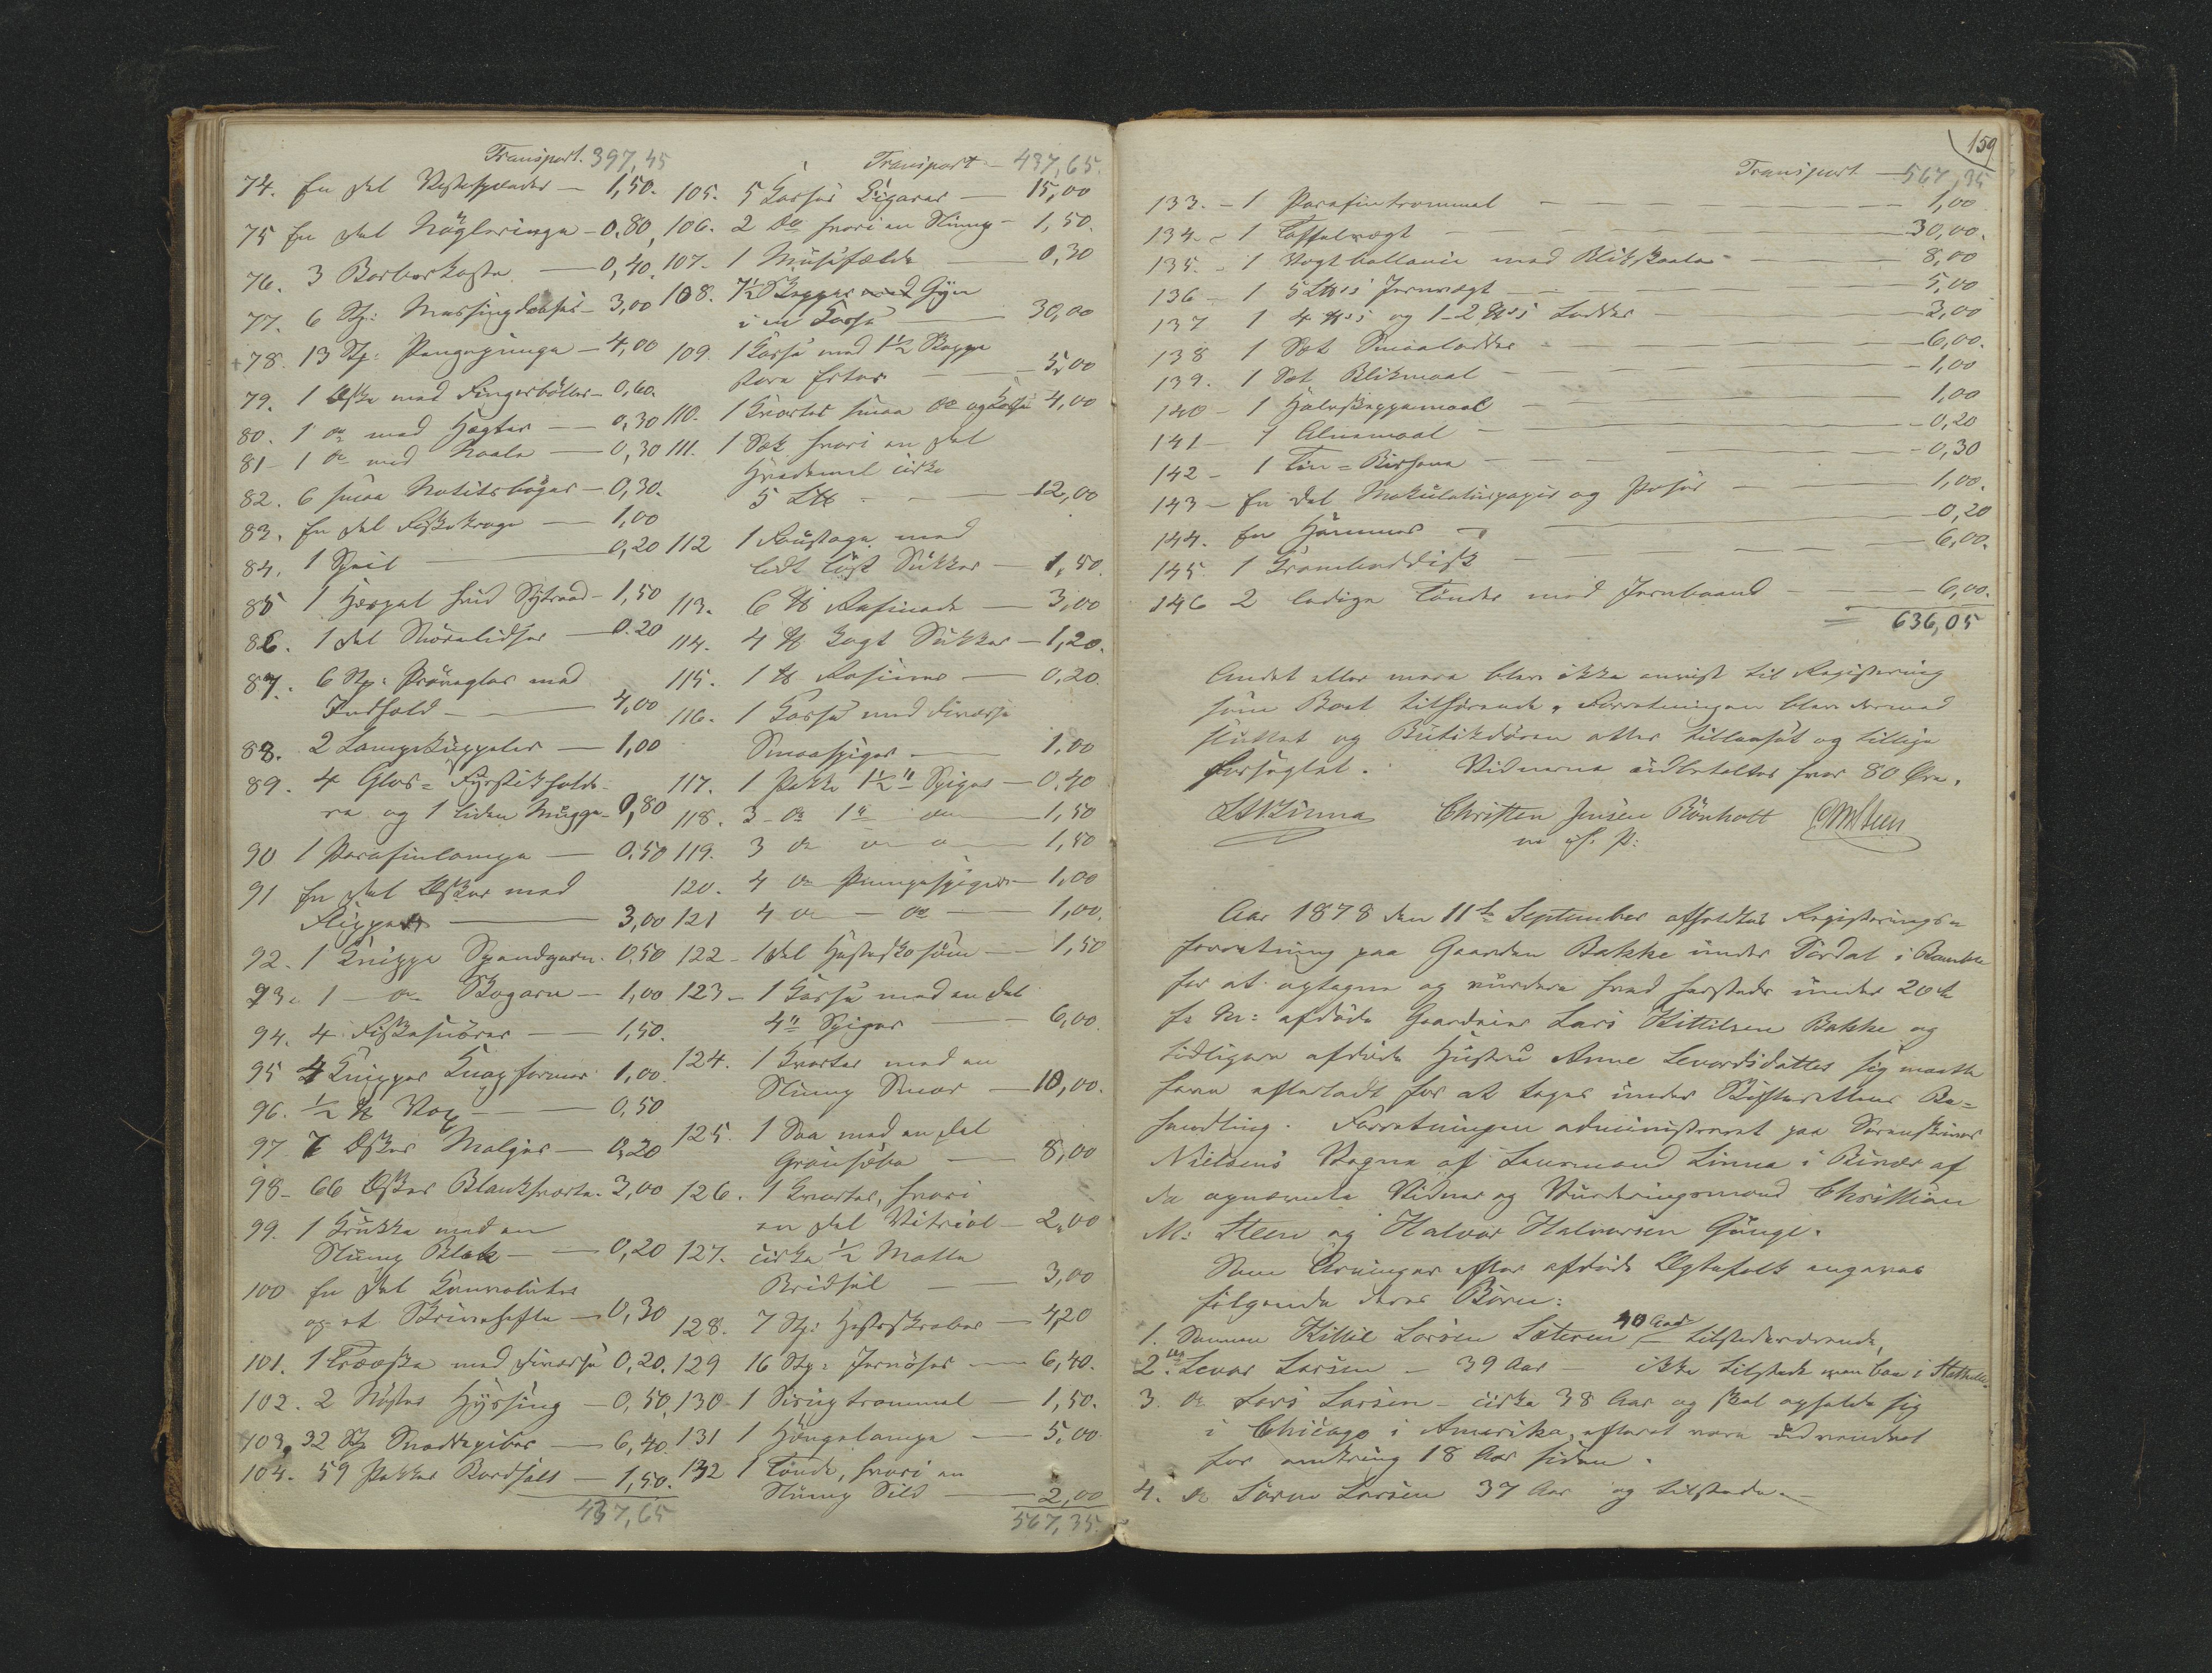 Transport. 397,45
74. En Del Vestespænder — 1,50.
75 En Del Nögleringe — 0,80
76. 3 Barberkoste — 0,40
77. 6 Stp: Messingdaaser — 3,00
+78. 13 Stp: Pengepunge — 4,00
79. 1 Æske med Fingerböller — 0,60.
80. 1 do med Hægter — 0,30
81 - 1 do med Naale — 0,30
82. 6 smaa Notitsbøger — 0,30.
83. En Del Fiskekroge — 1,00
84. 1 Speil — 0,20
85 1 Hespel hvid Sytraad — 1,50
86. 1 Del Skorelidser — 0.20
87. 6 Stp: Pröveglas med
Indhold — 4,00
88. 2 Lampekuppeler — 1,00
89. 4 Glas= Fyrstikholde-
re og 1 liden Mugge — 0,80
90 1 Parafinlampe — 0,50
91 En Del Æsker med
Flipper — 3,00
92. 1 Knippe Spandgarn. 0,50
93. 1 — do Bogarn — 1,00
94. 4 Fiskesnörer — 1,50.
95 4 Knipper Knapformer 1,00
96. ½ ℔ Vox — 0,50
97. 7 Æsker Maljer — 0,20
98 - 66 Æsker Blanksværte. 3,00
99. 1 Krukke med en
Slump Blæk — 0,20
100 En Del Konvolutter
og et Skrivehefte — 0,30
101. 1 Træeske med diverse 0,20.
102. 2 Nöster Hyssing — 0,50
103. 32 Stp Snaddepiber — 6,40
104. 59 Pakker Bordsalt — 1,50.
437,65
Transport — 437,65.
105. 5 Kasser Cigarer — 15,00
106. 2 Do hvori en Slump — 1,50.
107. 1 Musefælde — 0,30
108. 7½ Skepper Gryn
i en Kasse — 30,00
109. 1 Kasse med 1½ Skeppe
store Erter — 5,00
110. 1 Kvarter smaa do og Kasse 4,00
111. 1 Sæk hvori en Del
Hvedemel cirka
5 L℔ — 12,00
112 1 Foustage med
lidt löst Sukker — 1,50.
113. 6 ℔ Rafinade — 3,00
114. 4 ℔ Kogt Sukker — 1,20.
115. 1 ℔ Rosiner — 0,20.
116. 1 Kasse med diverse
Smaaspiger — 1,00
117. 1 Pakke 1½" Spiger — 0,40
118. 3 - do 1" do — 1,50
119. 3 do do — 1,50
120. 4 do Pungespiger — 1,00
121 4 do — do — 1,00.
122 - 1 Del Hesteskosöm — 1,50
123 - 1 Kasse med en Del
4" Spiger — 6,00
124. 1 Kvarter med en
Slump Smör — 10,00.
125. 1 Saa med en Del
Grönsæbe — 8,00
126. 1 Kvarter, hvori
en Del Vitriol — 2,00
127. cirka ½ Matte
Bridsel — 3,00
128. 7 Stp: Hesteskraber — 4,20
129 16 Stp: Jernöser — 6,40.
130 - 1 Siruptrommel — 1,50.
131 1 Hængelampe — 5,00
132 1 Tönde, hvori en
Slump Sild — 2,00
567,35.
159
Transport — 567,35
133. - 1 Parafintrommel — 1,00
134. - 1 Taffelvægt — 30,00.
135. - 1 Vægtballance med Blikskaaler — 8,00
136 - 1 5 L℔s Jernvægt — 5,00
137 1 4 ℔s og 1 - 2 ℔s Lodder — 3,00
138 1 Set Smaalodder — 6,00.
139. 1 Set Blikmaal — 1,00
140 - 1 Halvskeppemaal — 1,00
141 - 1 Alnemaal — 0,20
142 - 1 Tin= — 0,30
143 - En Del Makulaturpapir og Poser — 1,00.
144. En Hammer — 0,20
145. 1 Kramboddisk — 6,00.
146 2 ledige Tönder med Jernbaand — 6,00.
= 636,05
Andet eller mere blev ikke anvist til Registrering
som Boet tilhörende, Forretningen blev dermed
sluttet og Butikdören atter tillaaset og tillige
forseglet. Vidnerne udbetaltes hver 80 Øre.
Linna Christen Jensen Rönholt CMSteen
m. f. P:
Aar 1878 den 11te September afholdtes Registrerings=
forretning paa Gaarden Bakke under Tordal i Bamble
for at optegne og vurdere hvad herstede under 20de
f: M: afdöde Gaardeier Lars Kittilsen Bakke og
tidligere afdöde Hustru Anne Levordsdatter sig maatte
have efterladt for at tages under Skifterettens Be=
handling. Forretningen administreret paa Sorenskriver
Nielsens Vegne af Lensmand Linna i Nærvær af
de opnævnte Vidner og Vurderingsmænd Christian
M: Steen og Halvor Halvorsen Gunge.
Som Arvinger efter afdöde Ægtefolk angaves
fölgende deres Börn:
1. Sönnen Kittil Larsen Sæteren 40 Aar tilstedeværende,
2. do Levor Larsen — 39 Aar — ikke tilstede men boe i Stathelle
3. do Lars Larsen — cirka 38 Aar og skal opholde sig
i Chicago i Amerika, efterat være udvandret
for omkring 18 Aar siden.
4. do Sören Larsen 37 Aar og tilstede. —